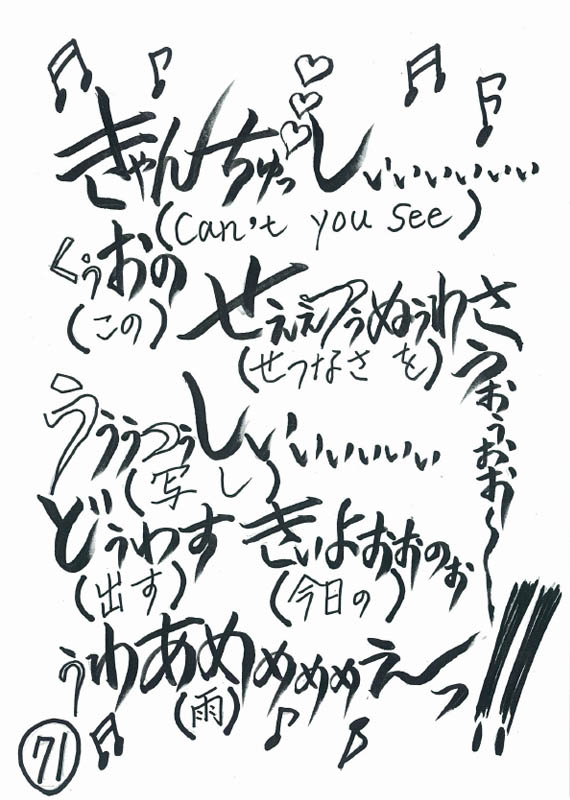 きゃんちゅっしぃぃぃぃぃぃぃ
(Can't you see)
くぅおの
(この)
せぇぇつぅぬぅわさ
(せつなさ を)
うぉぅぉおお〜
うぅぅつぅしぃぃぃぃぃぃぃ
(写 し)
どぅわす きぃよおおのぉ
(出す) (今日の)
ぅわあめめめめえーっ!!
(雨)
71